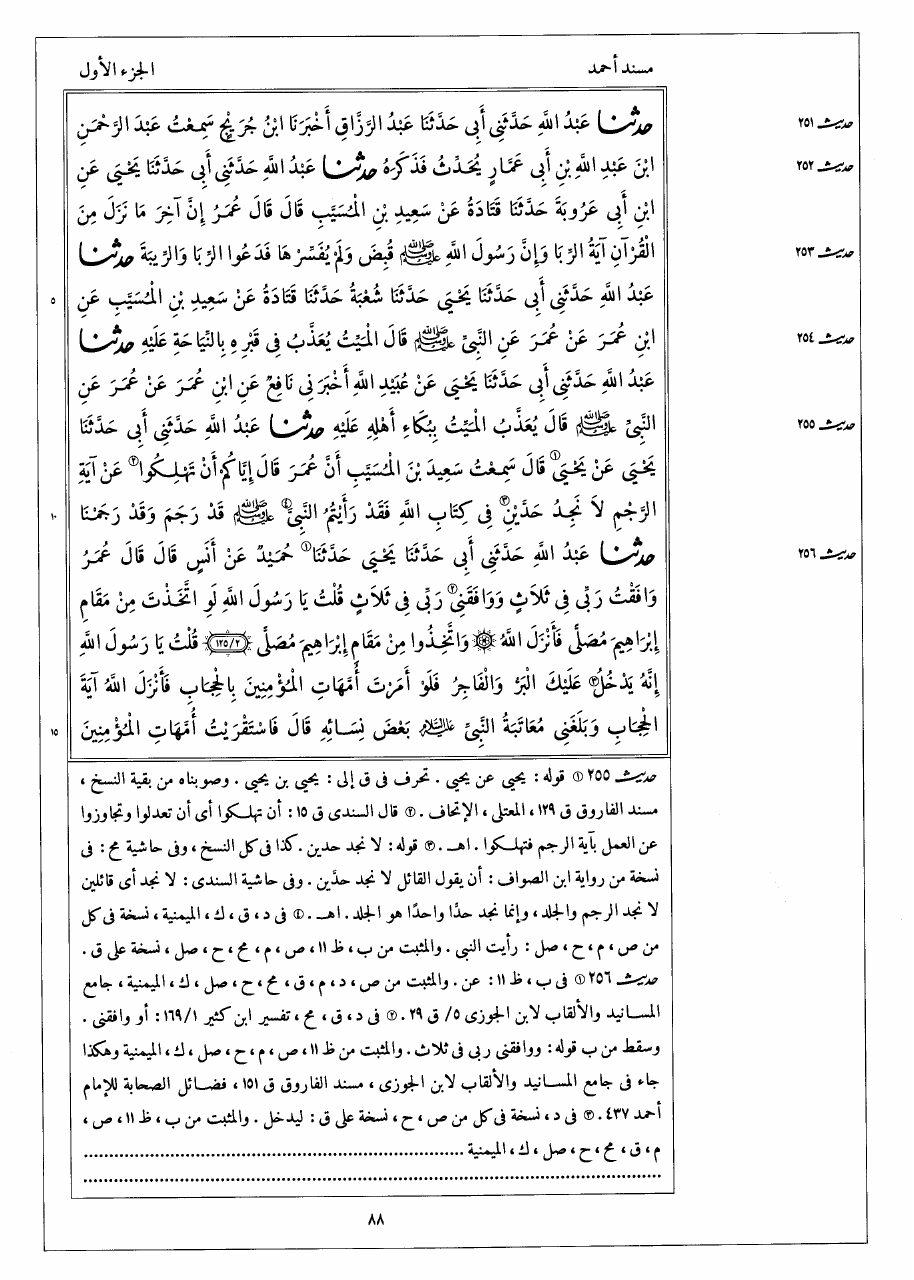 مسند أحمد
الجزء الأول
حديث ٢٥١
حدثنا عَبْدُ اللَّهِ حَدَّثَنِي أَبِي حَدَّثَنَا عَبْدُ الرَّزَّاقِ أَخْبَرَنَا ابْنُ جُرَيْجٍ سَمِعْتُ عَبْدَ الرَّحْمَنِ
حديث ٢٥٢
ابْنَ عَبْدِ اللَّهِ بْنِ أَبِي عَمَّارٍ يُحَدِّثُ فَذَكَرَهُ حدثنا عَبْدُ اللَّهِ حَدَّثَنِي أَبِي حَدَّثَنَا يَحْيَى عَنِ
ابْنِ أَبِي عَرُوبَةَ حَدَّثَنَا قَتَادَةُ عَنْ سَعِيدِ بْنِ الْمُسَيَّبِ قَالَ قَالَ عُمَرُ إِنَّ آخِرَ مَا نَزَلَ مِنَ
حديث ٢٥٣
الْقُرْآنِ آيَةُ الرِّبَا وَإِنَّ رَسُولَ اللَّهِ ﷺ قُبِضَ وَلَمْ يُفَسِّرْهَا فَدَعُوا الرِّبَا وَالرِّيبَةَ حدثنا
٥
عَبْدُ اللَّهِ حَدَّثَنِي أَبِي حَدَّثَنَا يَحْيَى حَدَّثَنَا شُعْبَةُ حَدَّثَنَا قَتَادَةُ عَنْ سَعِيدِ بْنِ الْمُسَيَّبِ عَنِ
حديث ٢٥٤
ابْنِ عُمَرَ عَنْ عُمَرَ عَنِ النَّبِيِّ ﷺ قَالَ الْمَيِّتُ يُعَذَّبُ فِي قَبْرِهِ بِالنِّيَاحَةِ عَلَيْهِ حدثنا
عَبْدُ اللَّهِ حَدَّثَنِي أَبِي حَدَّثَنَا يَحْيَى عَنْ عُبَيْدِ اللَّهِ أَخْبَرَنِي نَافِعٌ عَنِ ابْنِ عُمَرَ عَنْ عُمَرَ عَنِ
حديث ٢٥٥
النَّبِيِّ ﷺ قَالَ يُعَذَّبُ الْمَيِّتُ بِبُكَاءِ أَهْلِهِ عَلَيْهِ حدثنا عَبْدُ اللَّهِ حَدَّثَنِي أَبِي حَدَّثَنَا
يَحْيَى عَنْ يَحْيَى① قَالَ سَمِعْتُ سَعِيدَ بْنَ الْمُسَيَّبِ أَنَّ عُمَرَ قَالَ إِيَّاكُمْ أَنْ تَهْلِكُوا② عَنْ آيَةِ
١٠
الرَّجْمِ لَا نَجِدُ حَدَّيْنِ③ فِي كِتَابِ اللَّهِ فَقَدْ رَأَيْتُمُ النَّبِيَّ④ ﷺ قَدْ رَجَمَ وَقَدْ رَجَمْنَا
حديث ٢٥٦
حدثنا عَبْدُ اللَّهِ حَدَّثَنِي أَبِي حَدَّثَنَا يَحْيَى حَدَّثَنَا① حُمَيْدٌ عَنْ أَنَسٍ قَالَ قَالَ عُمَرُ
وَافَقْتُ رَبِّي فِي ثَلَاثٍ وَوَافَقَنِي② رَبِّي فِي ثَلَاثٍ قُلْتُ يَا رَسُولَ اللَّهِ لَوِ اتَّخَذْتَ مِنْ مَقَامِ
إِبْرَاهِيمَ مُصَلًّى فَأَنْزَلَ اللَّهُ ۞ وَاتَّخِذُوا مِنْ مَقَامِ إِبْرَاهِيمَ مُصَلًّى (١٢٥/٢) قُلْتُ يَا رَسُولَ اللَّهِ
إِنَّهُ يَدْخُلُ③ عَلَيْكَ الْبَرُّ وَالْفَاجِرُ فَلَوْ أَمَرْتَ أُمَّهَاتِ الْمُؤْمِنِينَ بِالْحِجَابِ فَأَنْزَلَ اللَّهُ آيَةَ
١٥
الْحِجَابِ وَبَلَغَنِي مُعَاتَبَةُ النَّبِيِّ عليه السلام بَعْضَ نِسَائِهِ قَالَ فَاسْتَقْرَيْتُ أُمَّهَاتِ الْمُؤْمِنِينَ
حديث ٢٥٥ ① قوله : يحيى عن يحيى . تحرف فى ق إلى : يحيى بن يحيى . وصوبناه من بقية النسخ ،
مسند الفاروق ق ١٢٩ ، المعتلى ، الإتحاف . ② قال السندى ق ١٥ : أن تهلكوا أى أن تعدلوا وتجاوزوا
عن العمل بآية الرجم فتهلكوا . اهـ . ③ قوله : لا نجد حدين . كذا فى كل النسخ ، وفى حاشية مح : فى
نسخة من رواية ابن الصواف : أن يقول القائل لا نجد حدَّين . وفى حاشية السندى : لا نجد أى قائلين
لا نجد الرجم والجلد ، وإنما نجد حدًّا واحدًا هو الجلد . اهـ . ④ فى د ، ق ، ك ، الميمنية ، نسخة فى كل
من ص ، م ، ح ، صل : رأيت النبى . والمثبت من ب ، ظ ١١ ، ص ، م ، مح ، ح ، صل ، نسخة على ق .
حديث ٢٥٦ ① فى ب ، ظ ١١ : عن . والمثبت من ص ، د ، م ، ق ، مح ، ح ، صل ، ك ، الميمنية ، جامع
المسانيد والألقاب لابن الجوزى ٥/ ق ٢٩ . ② فى د ، ق ، مح ، تفسير ابن كثير ١/ ١٦٩ : أو وافقنى .
وسقط من ب قوله : ووافقنى ربى فى ثلاث . والمثبت من ظ ١١ ، ص ، م ، ح ، صل ، ك ، الميمنية وهكذا
جاء فى جامع المسانيد والألقاب لابن الجوزى ، مسند الفاروق ق ١٥١ ، فضائل الصحابة للإمام
أحمد ٤٣٧ . ③ فى د ، نسخة فى كل من ص ، ح ، نسخة على ق : ليدخل . والمثبت من ب ، ظ ١١ ، ص ،
م ، ق ، مح ، ح ، صل ، ك ، الميمنية ..........
٨٨